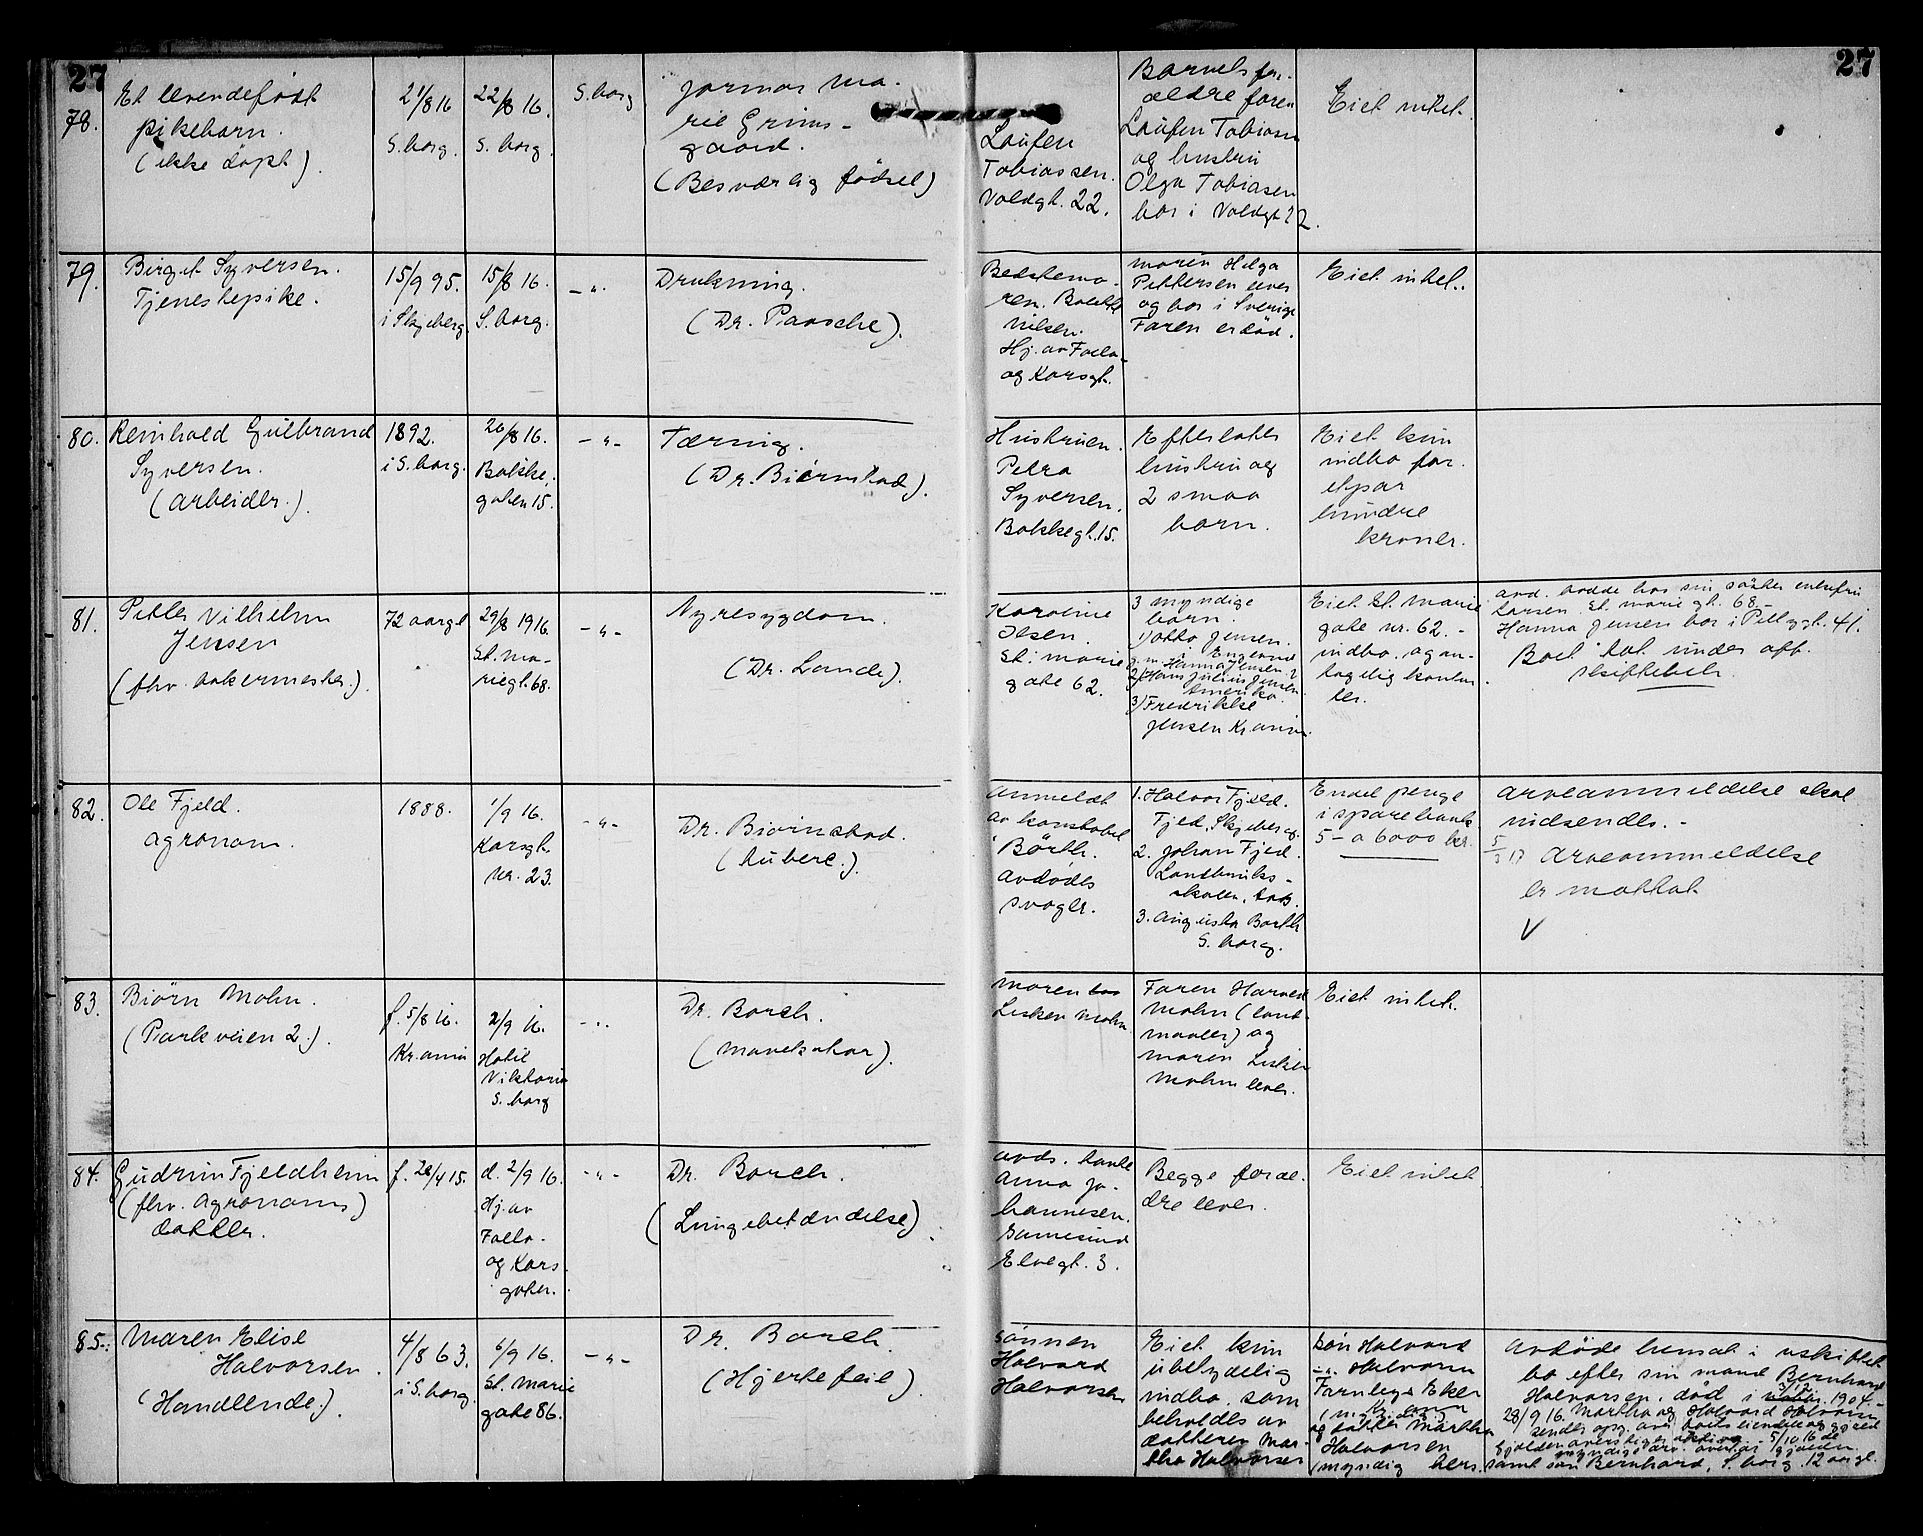 27
27
78.
Et levendefødt
pikebarn.
(ikke døpt).
21/8 16
S.borg.
22/8 16.
S. borg.
S. borg
Jormor Ma-
rie Grims-
gaard.
(Besværlig fødsel)
Laufen
Tobiassen.
Voldgt. 22.
Barnets for-
ældre faren
Laufen Tobiasen
og hustru
Olga Tobiasen
bor i Voldgt 22.
Eiet intet.
79.
Birgit Syversen.
Tjenestepike.
15/9 95.
i Skjeberg
15/8 16.
S. borg.
-"-
Drukning.
(Dr. Paasche).
Bedstemo-
ren. Bolette
Nilsen.
Hj. av Foelo-
og Korsgt.
moren Helga
Pettersen lever
og bor i Sverige
Faren er død.
Eiet intet.
80.
Reinhold Gulbrand
Syversen.
(Arbeider.).
1892.
i S. borg.
20/8 16.
Bakke-
gaten 15.
-"-
Tæring.
(Dr. Biørnstad).
Hustruen.
Petra
Syversen.
Bakkegt. 15.
Efterlater
hustru og
2 smaa
barn.
Eiet kun
indbo for
etpar
hundre
kroner.
81.
Petter Vilhelm
Jensen
(fhv. ankermester.).
72 aar gl
29/8 1916.
St. Ma-
riegt. 68.
-"-
Nyresygdom.
(Dr. Lande).
Karoline
Olsen.
St. Marie
gate 62.
3 myndige
barn.
1) Otto Jensen.
i England
g. m. Hanna Jensen.
2) Hans Julius Jensen
Amerika.
3) Fredrikke
Jensen Kr.ania
Eiet St. Marie
gate nr. 62. -
indbo. og an-
tagelig kontan-
ter.
avd. bodde hos sin søster enkefru
Larsen St. Marie gt. 68. -
Hanna Jensen bor i Pellygt. 41.
Boet tat under off.
skiftebeh.
82.
Ole Fjeld.
Agronom.
1888.
1/9 16.
Korsgt.
nr. 23.
-"-
Dr. Biørnstad.
(tuberc.).
Anmeldt
av konstabel
Børth.
Avdødes
svoger.
1. Halvor Fjeld.
Fjed, Skjeberg.
2. Johan Fjed.
Landbruks-
skolen.
3. Augusta Børth
S. borg.
Endel penge
i sparebank
5- a 6000 kr.
Arveanmeldelse skal
indsendes. -
5/3 17 Arveanmeldelse
er mottat
V
83.
Biørn Mohn.
(Parkveien 2.).
f. 5/8 16.
Kr. ania
2/9 16.
Hotel
Viktoria
S. borg
-"-
Dr. Borch.
(Mavekatar).
Moren
Lisken Mohn.
Faren Harved
Mohn (land-
maaler) og
moren Lisken
Mohn lever.
Eiet intet.
84.
Gudrun Fjeldheim
(fhv. Agronoms)
datter.
f. 28/4 15.
d. 2/9 16.
Hj. av
Foelo-
og Kors-
gaten.
-"-
Dr. Borch.
(Lungebetændelse).
avds. tante
Anna Jo-
hannesen.
Sannesund
Elvegt. 3.
Begge foræl-
dre lever.
Eiet intet
85.
Maren Elise
Halvorsen.
(Handlende.).
4/8 63.
i S. borg.
6/9 16.
St. Marie
gate 86.
-"-
Dr. Borch.
(Hjertefeil).
Sønnen
Halvard
Halvorsen
Eiet kun
ubetydelig
indbo, som
beholdes av
datteren Mar-
tha Halvorsen
Søn Halvard
Halvorsen
Farnley Eker
(myndig)
og datter Martha
Halvorsen
(myndig hers.
Avdøde hensat i uskiftet
bo efter sin mand Bernhard
Halvorsen, død i 1904. -
28/9 16. Martha og Halvard Halvorsen
5/10 16 de
myndige arv. overtar gjælden
samt søn Bernhard, S. borg. 12 aar gl.